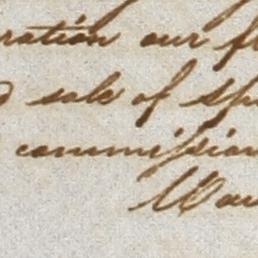 ration our f
sale of sp
commission